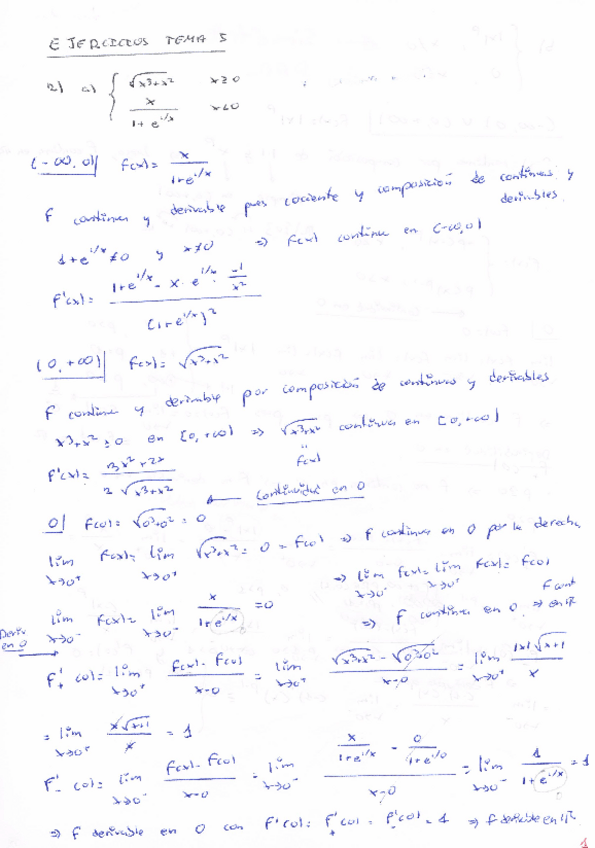 EJERCICIOS TEMA 5
2) a) { √x³+x² x≥0
x / 1+e^1/x x<0
(-∞,0) f(x)= x / 1+e^1/x
f continua y derivable pues cociente y composición de continuas y derivables.
1+e^1/x ≠0 y x≠0 ⇒ f(x) continua en (-∞,0)
f'(x)= 1+e^1/x - x · e^1/x · -1/x² / (1+e^1/x)²
(0,+∞) f(x)= √x³+x²
f continua y derivable por composición de continuas y derivables
x³+x² ≥0 en [0,+∞) ⇒ √x³+x² continua en [0,+∞)
" f(x)
f'(x)= 3x²+2x / 2√x³+x²
← Continuidad en 0
0) f(0)= √0³+0² = 0
lim x→0⁺ f(x)= lim x→0⁺ √x³+x² = 0 = f(0) ⇒ f continua en 0 por la derecha
lim x→0⁻ f(x)= lim x→0⁻ x / 1+e^1/x =0
⇒ lim x→0⁻ f(x)= lim x→0⁺ f(x)= f(0)
⇒ f continua en 0 ⇒ f cont en ℝ
Deriv en 0 →
f'₊(0)= lim x→0⁺ f(x)-f(0) / x-0 = lim x→0⁺ √x³+x² - √0³+0² / x-0 = lim x→0⁺ |x|√x+1 / x
= lim x→0⁺ x√x+1 / x = 1
f'₋(0)= lim x→0⁻ f(x)-f(0) / x-0 = lim x→0⁻ x / 1+e^1/x - 0 / 1+e^1/0 / x-0 = lim x→0⁻ 1 / 1+e^1/x = 1
⇒ f derivable en 0 con f'(0)= f'₊(0)= f'₋(0)= 1 ⇒ f derivable en ℝ.
1